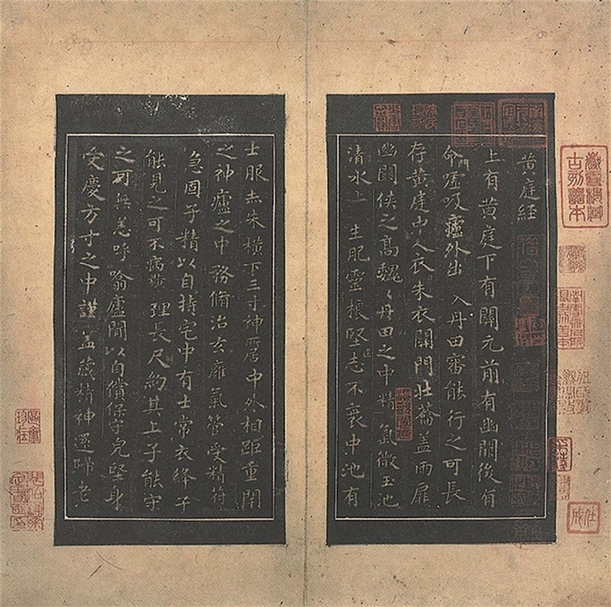 黄庭經
上有黄庭下有關元前有幽闕後有
命門嘘吸廬外出入丹田審能行之可長
存黄庭中人衣朱衣關門壯蘥盖兩扉
幽闕侠之髙魏魏丹田之中精氣微玉池
清水上生肥靈根堅志不衰中池有
士服赤朱横下三寸神所居中外相距重閉
之神廬之中務脩治玄㢓氣管受精符
急固子精以自持宅中有士常衣絳子
能見之可不病横理長尺約其上子能守
之可無恙呼噏廬閒以自償保守完堅身
受慶方寸之中謹盖藏精神還歸老